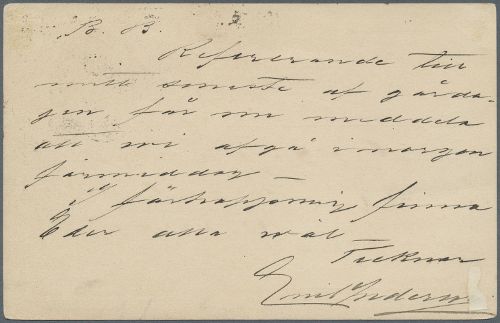 B. B.
Refererande till
mitt senaste af gårda-
gen får nu meddela
att vi afgå i morgon
förmiddag —
I förhoppning finna
Eder alla väl
Tecknar
Emil